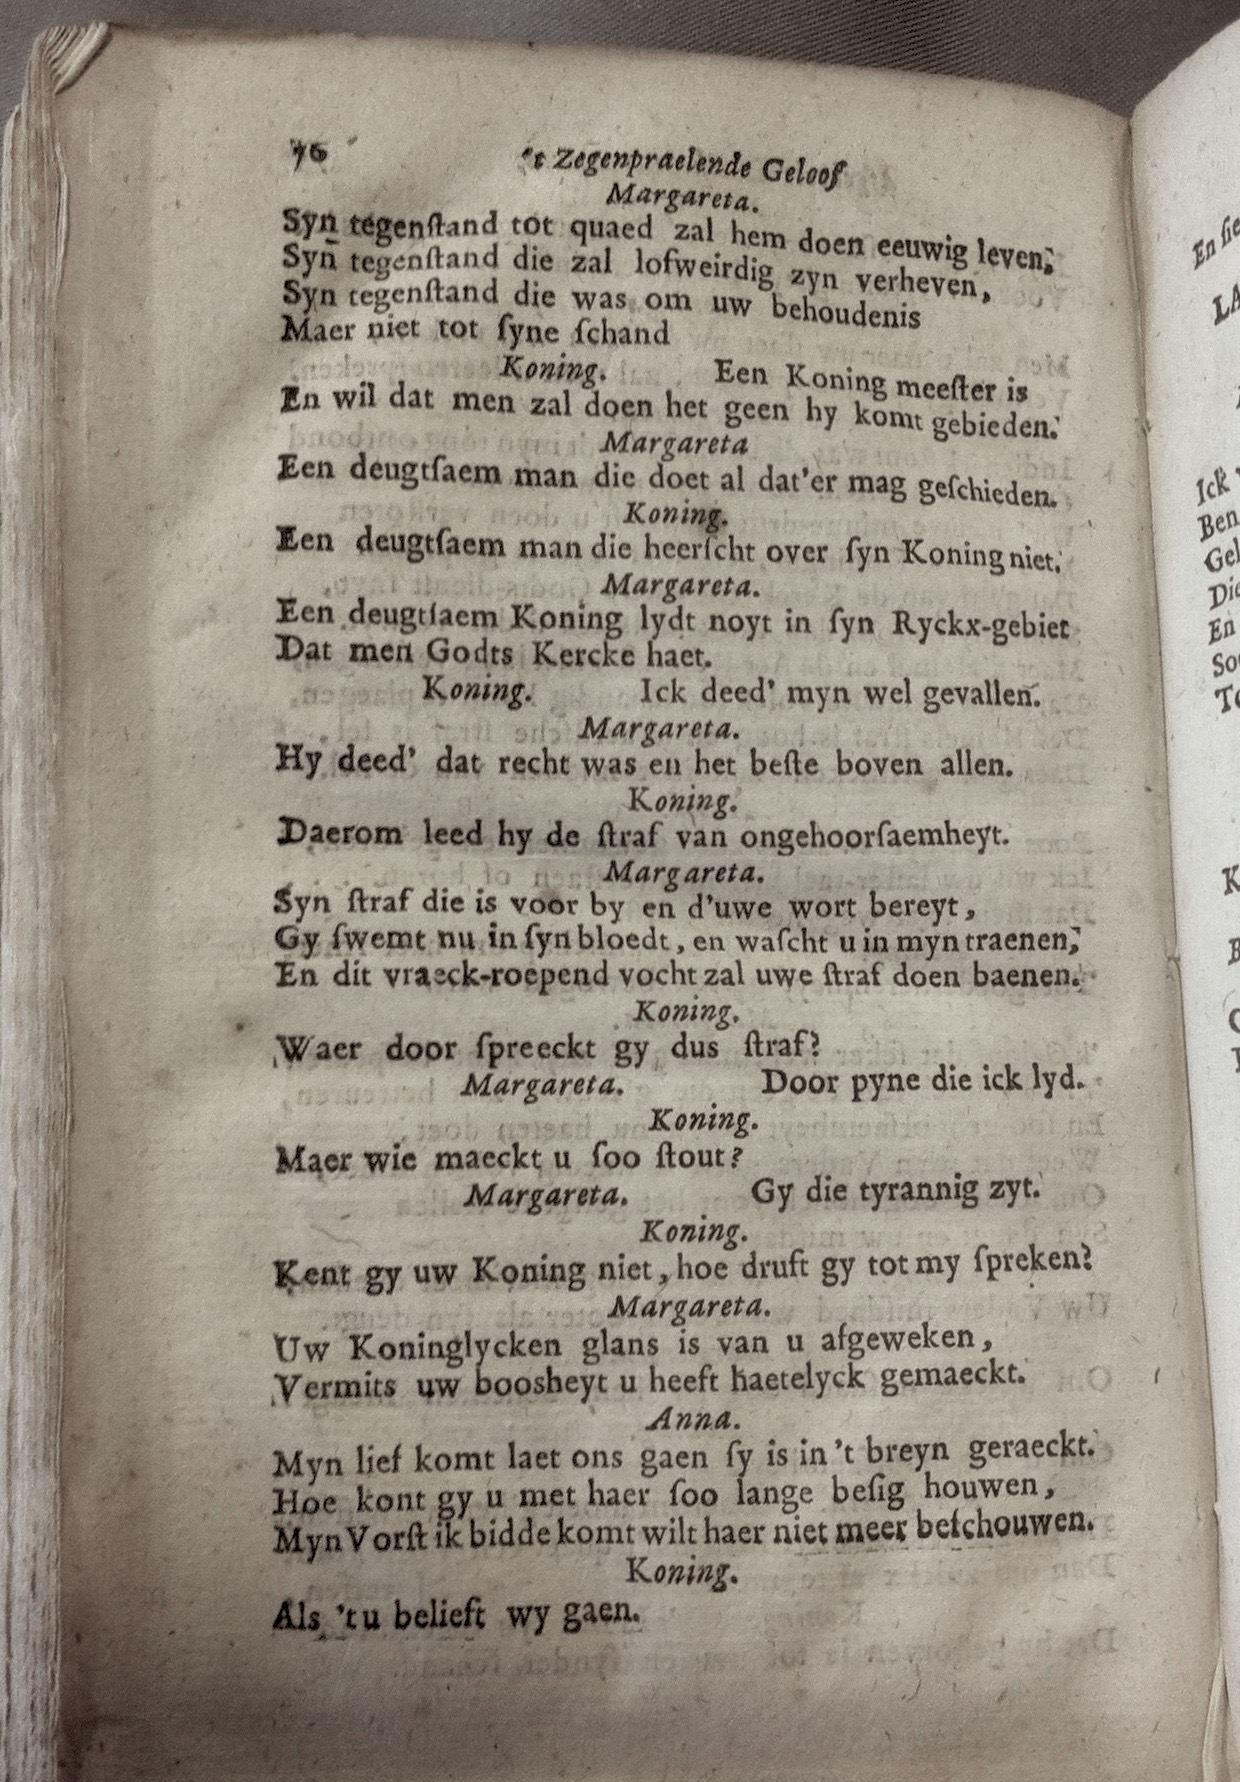 76 't Zegenpraelende Geloof
Margareta.
Syn tegenſtand tot quaed zal hem doen eeuwig leven;
Syn tegenſtand die zal lofweirdig zyn verheven,
Syn tegenſtand die was om uw behoudenis
Maer niet tot ſyne ſchand
Koning. Een Koning meeſter is
En wil dat men zal doen het geen hy komt gebieden.
Margareta
Een deugtſaem man die doet al dat'er mag geſchieden.
Koning.
Een deugtſaem man die heerſcht over ſyn Koning niet.
Margareta.
Een deugtſaem Koning lydt noyt in ſyn Ryckx-gebiet
Dat men Godts Kercke haet.
Koning. Ick deed' myn wel gevallen.
Margareta.
Hy deed' dat recht was en het beſte boven allen.
Koning.
Daerom leed hy de ſtraf van ongehoorſaemheyt.
Margareta.
Syn ſtraf die is voor by en d'uwe wort bereyt,
Gy ſwemt nu in ſyn bloedt, en waſcht u in myn traenen;
En dit vraeck-roepend vocht zal uwe ſtraf doen baenen.
Koning.
Waer door ſpreeckt gy dus ſtraf?
Margareta. Door pyne die ick lyd.
Koning.
Maer wie maeckt u ſoo ſtout?
Margareta. Gy die tyrannig zyt.
Koning.
Kent gy uw Koning niet, hoe druft gy tot my ſpreken?
Margareta.
Uw Koninglycken glans is van u afgeweken,
Vermits uw boosheyt u heeft haetelyck gemaeckt.
Anna.
Myn lief komt laet ons gaen ſy is in 't breyn geraeckt.
Hoe kont gy u met haer ſoo lange beſig houwen,
Myn Vorſt ik bidde komt wilt haer niet meer beſchouwen.
Koning.
Als 't u belieft wy gaen.
En
LA
Ick
Ben
Gel
Die
En
Soo